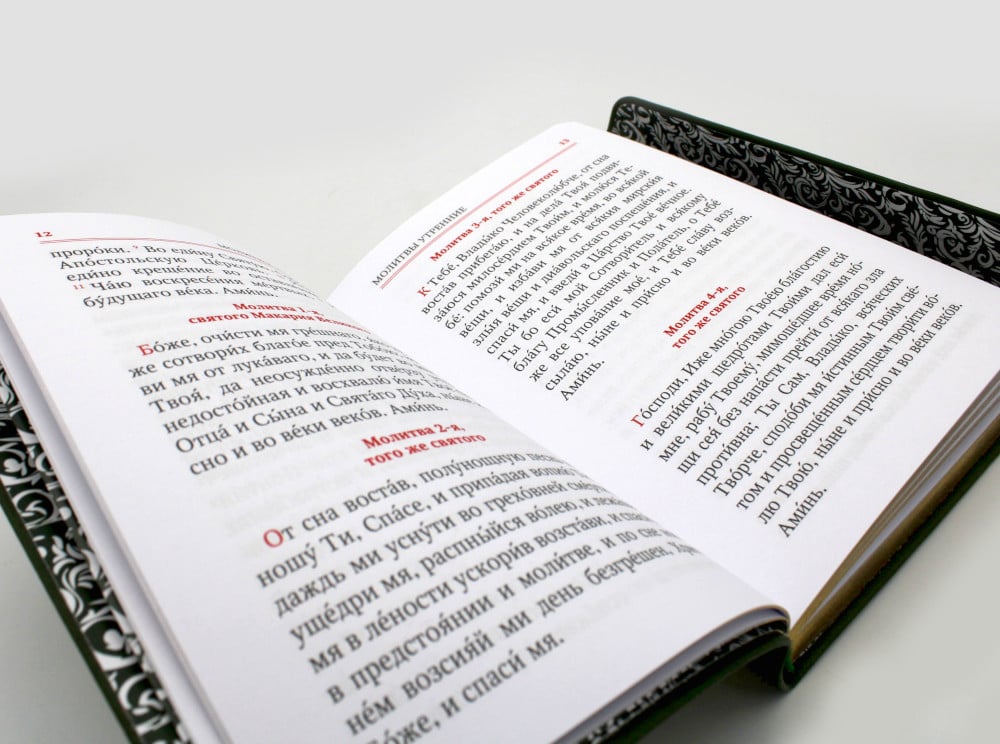 12
проро́ки. ⁹ Во еди́ну Свя
Апо́стольскую Це́рковь
еди́но креще́ние во ос
¹¹ Ча́ю воскресе́ния ме́ртвы
бу́дущаго ве́ка. Ами́нь.
Молитва 1-я,
святого Макария Вели
Бо́же, очи́сти мя гре́шнаго,
же сотвори́х благо́е пред Т
ви мя от лука́ваго, и да бу́дет
Твоя́, да неосужде́нно отве́рзу
недосто́йная и восхвалю́ и́мя Т
Отца́ и Сы́на и Свята́го Ду́ха, ны
сно и во ве́ки веко́в. Ами́нь.
Молитва 2-я,
того же святого
От сна воста́в, полу́нощную песн
ношу́ Ти, Спа́се, и припа́дая вопию́
даждь ми усну́ти во грехо́вней сме́р
уще́дри мя, распны́йся во́лею, и леж
мя в ле́ности ускори́в возста́ви, и спаси́
в предстоя́нии и моли́тве, и по сне
не́м возсия́й ми день безгре́шен, Хри
Бо́же, и спаси́ мя.
МОЛИТВЫ УТРЕННИЕ
13
Молитва 3-я, того же святого
К Тебе́, Влады́ко Человеколю́бче, от сна
воста́в прибега́ю, и на дела́ Твоя́ подви-
за́юся милосе́рдием Твои́м, и молю́ся Те-
бе́: помози́ ми на вся́кое вре́мя, во вся́кой
ве́щи, и изба́ви мя от вся́кия мирски́я
злы́я ве́щи и диа́вольскаго поспеше́ния, и
спаси́ мя, и введи́ в Ца́рство Твое́ ве́чное.
Ты бо еси́ мой Сотвори́тель и вся́кому
бла́гу Промы́сленник и Пода́тель, о Тебе́
же все упова́ние мое́, и Тебе́ сла́ву воз-
сыла́ю, ны́не и при́сно и во ве́ки веко́в.
Ами́нь.
Молитва 4-я,
того же святого
Го́споди, И́же мно́гою Твое́ю бла́гостию
и вели́кими щедро́тами Твои́ми дал еси́
мне, рабу́ Твоему́, мимоше́дшее вре́мя но́-
щи сея́ без напа́сти прейти́ от вся́каго зла
проти́вна; Ты Сам, Влады́ко, вся́ческих
Тво́рче, сподо́би мя и́стинным Твои́м све́-
том и просвеще́нным се́рдцем твори́ти во́-
лю Твою́, ны́не и при́сно и во ве́ки веко́в.
Ами́нь.